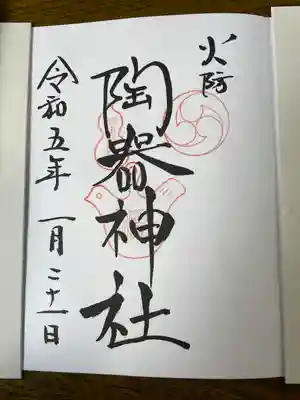 火防
陶器神社
令和五年 一月二十一日